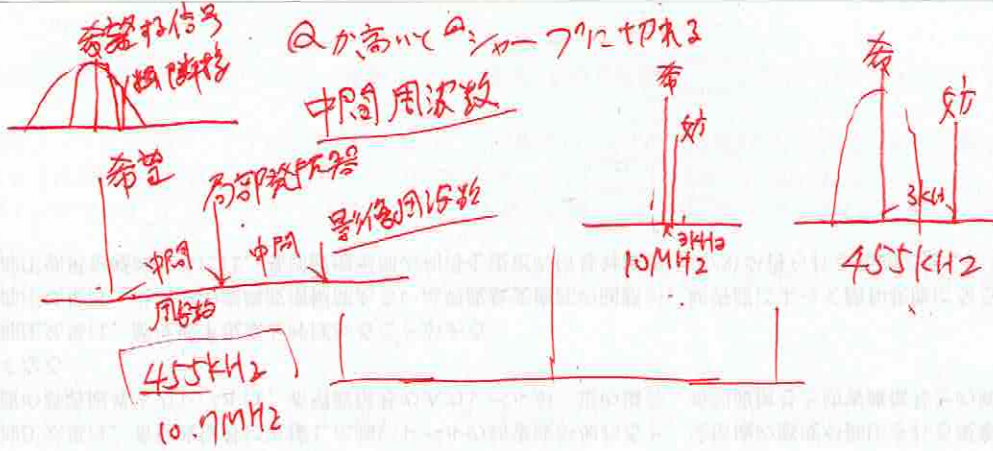 希望する信号
隣接
Qが高いと シャープに切れる
中間周波数
希望
局部発振器
影像周波数
中間
中間
周波数
455kHz
10.7MHz
希
妨
3kHz
10MHz
希
妨
3kHz
455kHz